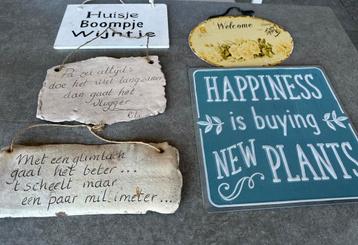 Huisje
Boompje
Wijntje
Welcome
Pa zei altijd:
doe het wat langzamer
dan gaat het
vlugger
HAPPINESS
is buying
NEW PLANTS
Met een glimlach
gaat het beter...
't scheelt maar
een paar milimeter...